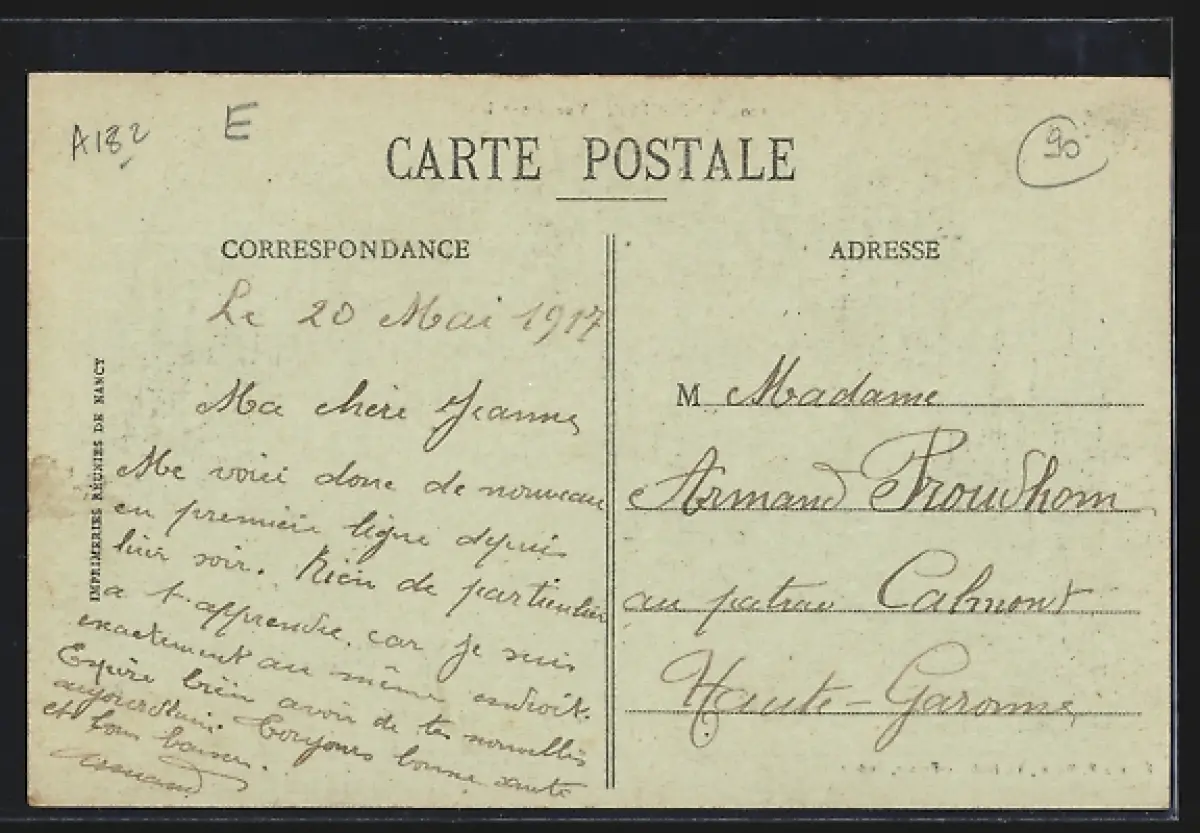 A182
E
90
CARTE POSTALE
CORRESPONDANCE
Le 20 Mai 1917
Ma chère Jeanne,
Me voici donc de nouveau
en première ligne depuis
hier soir. Rien de particulier
a t'apprendre, car je suis
exactement au même endroit.
Espère bien avoir de tes nouvelles
aujourd'hui. Toujours bonne santé
et bons baisers.
Armand
IMPRIMERIES RÉUNIES DE NANCY
ADRESSE
M Madame
Armand Proudhom
au Calmont
Haute-Garonne